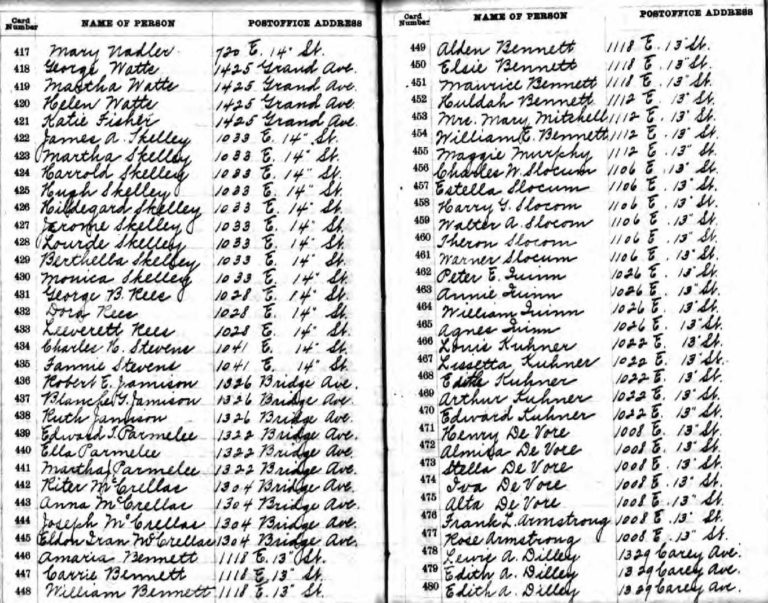 Card Number NAME OF PERSON POSTOFFICE ADDRESS
417 Mary Nadler 720 E. 14" St.
418 George Watts 1425 Grand Ave.
419 Martha Watts 1425 Grand Ave.
420 Helen Watts 1425 Grand Ave.
421 Katie Fisher 1425 Grand Ave.
422 James A. Skelley 1033 E. 14" St.
423 Martha Skelley 1033 E. 14" St.
424 Harrold Skelley 1033 E. 14" St.
425 Hugh Skelley 1033 E. 14" St.
426 Hildegard Skelley 1033 E. 14" St.
427 Jerome Skelley 1033 E. 14" St.
428 Lourde Skelley 1033 E. 14" St.
429 Berthella Skelley 1033 E. 14" St.
430 Monica Skelley 1033 E. 14" St.
431 George B. Rees 1028 E. 14" St.
432 Dora Rees 1028 E. 14" St.
433 Leeverett Rees 1028 E. 14" St.
434 Charles H. Stevens 1041 E. 14" St.
435 Fannie Stevens 1041 E. 14" St.
436 Robert E. Jamison 1326 Bridge Ave.
437 Blanche G. Jamison 1326 Bridge Ave.
438 Ruth Jamison 1326 Bridge Ave.
439 Edward I. Parmelee 1322 Bridge Ave.
440 Ella Parmelee 1322 Bridge Ave.
441 Martha Parmelee 1322 Bridge Ave.
442 Riter McCrellas 1304 Bridge Ave.
443 Anna McCrellas 1304 Bridge Ave.
444 Joseph McCrellas 1304 Bridge Ave.
445 Eldon Iran McCrellas 1304 Bridge Ave.
446 Amaria Bennett 1118 E. 13" St.
447 Carrie Bennett 1118 E. 13" St.
448 William Bennett 1118 E. 13" St.
Card Number NAME OF PERSON POSTOFFICE ADDRESS
449 Alden Bennett 1118 E. 13" St.
450 Elsie Bennett 1118 E. 13" St.
451 Maurice Bennett 1118 E. 13" St.
452 Huldah Bennett 1112 E. 13" St.
453 Mrs. Mary Mitchell 1112 E. 13" St.
454 William E. Bennett 1112 E. 13" St.
455 Maggie Murphy 1112 E. 13" St.
456 Charles W. Slocum 1106 E. 13" St.
457 Estella Slocum 1106 E. 13" St.
458 Harry G. Slocom 1106 E. 13" St.
459 Walter A. Slocom 1106 E. 13" St.
460 Theron Slocom 1106 E. 13" St.
461 Warner Slocum 1106 E. 13" St.
462 Peter E. Quinn 1026 E. 13" St.
463 Annie Quinn 1026 E. 13" St.
464 William Quinn 1026 E. 13" St.
465 Agnes Quinn 1026 E. 13" St.
466 Louis Kuhner 1022 E. 13" St.
467 Lissetta Kuhner 1022 E. 13" St.
468 Edith Kuhner 1022 E. 13" St.
469 Arthur Kuhner 1022 E. 13" St.
470 Edward Kuhner 1022 E. 13" St.
471 Henry De Vore 1008 E. 13" St.
472 Almira De Vore 1008 E. 13" St.
473 Stella De Vore 1008 E. 13" St.
474 Iva De Vore 1008 E. 13" St.
475 Alta De Vore 1008 E. 13" St.
476 Frank L. Armstrong 1008 E. 13" St.
477 Rose Armstrong 1008 E. 13" St.
478 Lewis A. Dilley 1329 Carey Ave.
479 Edith A. Dilley 1329 Carey Ave.
480 Edith A. Dilley 1329 Carey Ave.